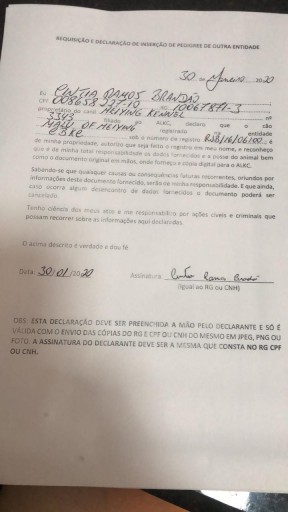 REQUISIÇÃO E DECLARAÇÃO DE INSERÇÃO DE PEDIGREE DE OUTRA ENTIDADE
30 de Janeiro 2020
Eu CINTIA RAMOS BRANDÃO
CPF RG
proprietário do canil MEIYING KENNEL nº
3343 filiado ao ALKC, declaro que o cão
OF MEIYING registrado na entidade
sob o número de registro ; é
de minha propriedade, autorizo que seja feito o registro em meu nome, e reconheço
que é de minha total responsabilidade os dados fornecidos e a posse do animal bem
como o documento original em mãos, onde forneço a cópia digital para o ALKC.
Sabendo-se que quaisquer causas ou consequências futuras recorrentes, oriundos por
informações deste documento fornecido, serão de minha responsabilidade. E que ainda,
caso ocorra algum desencontro de dados fornecidos o documento poderá ser
cancelado.
Tenho ciência dos meus atos e me responsabilizo por ações cíveis e criminais que
possam recorrer sobre as informações aqui declaradas.
O acima descrito é verdade e dou fé.
Data 30/01/2020 Assinatura
(Igual ao RG ou CNH)
OBS: ESTA DECLARAÇÃO DEVE SER PREENCHIDA A MÃO PELO DECLARANTE E SÓ É
VÁLIDA COM O ENVIO DAS CÓPIAS DO RG E CPF OU CNH DO MESMO EM JPEG, PNG OU
FOTO. A ASSINATURA DO DECLARANTE DEVE SER A MESMA QUE CONSTA NO RG CPF
OU CNH.